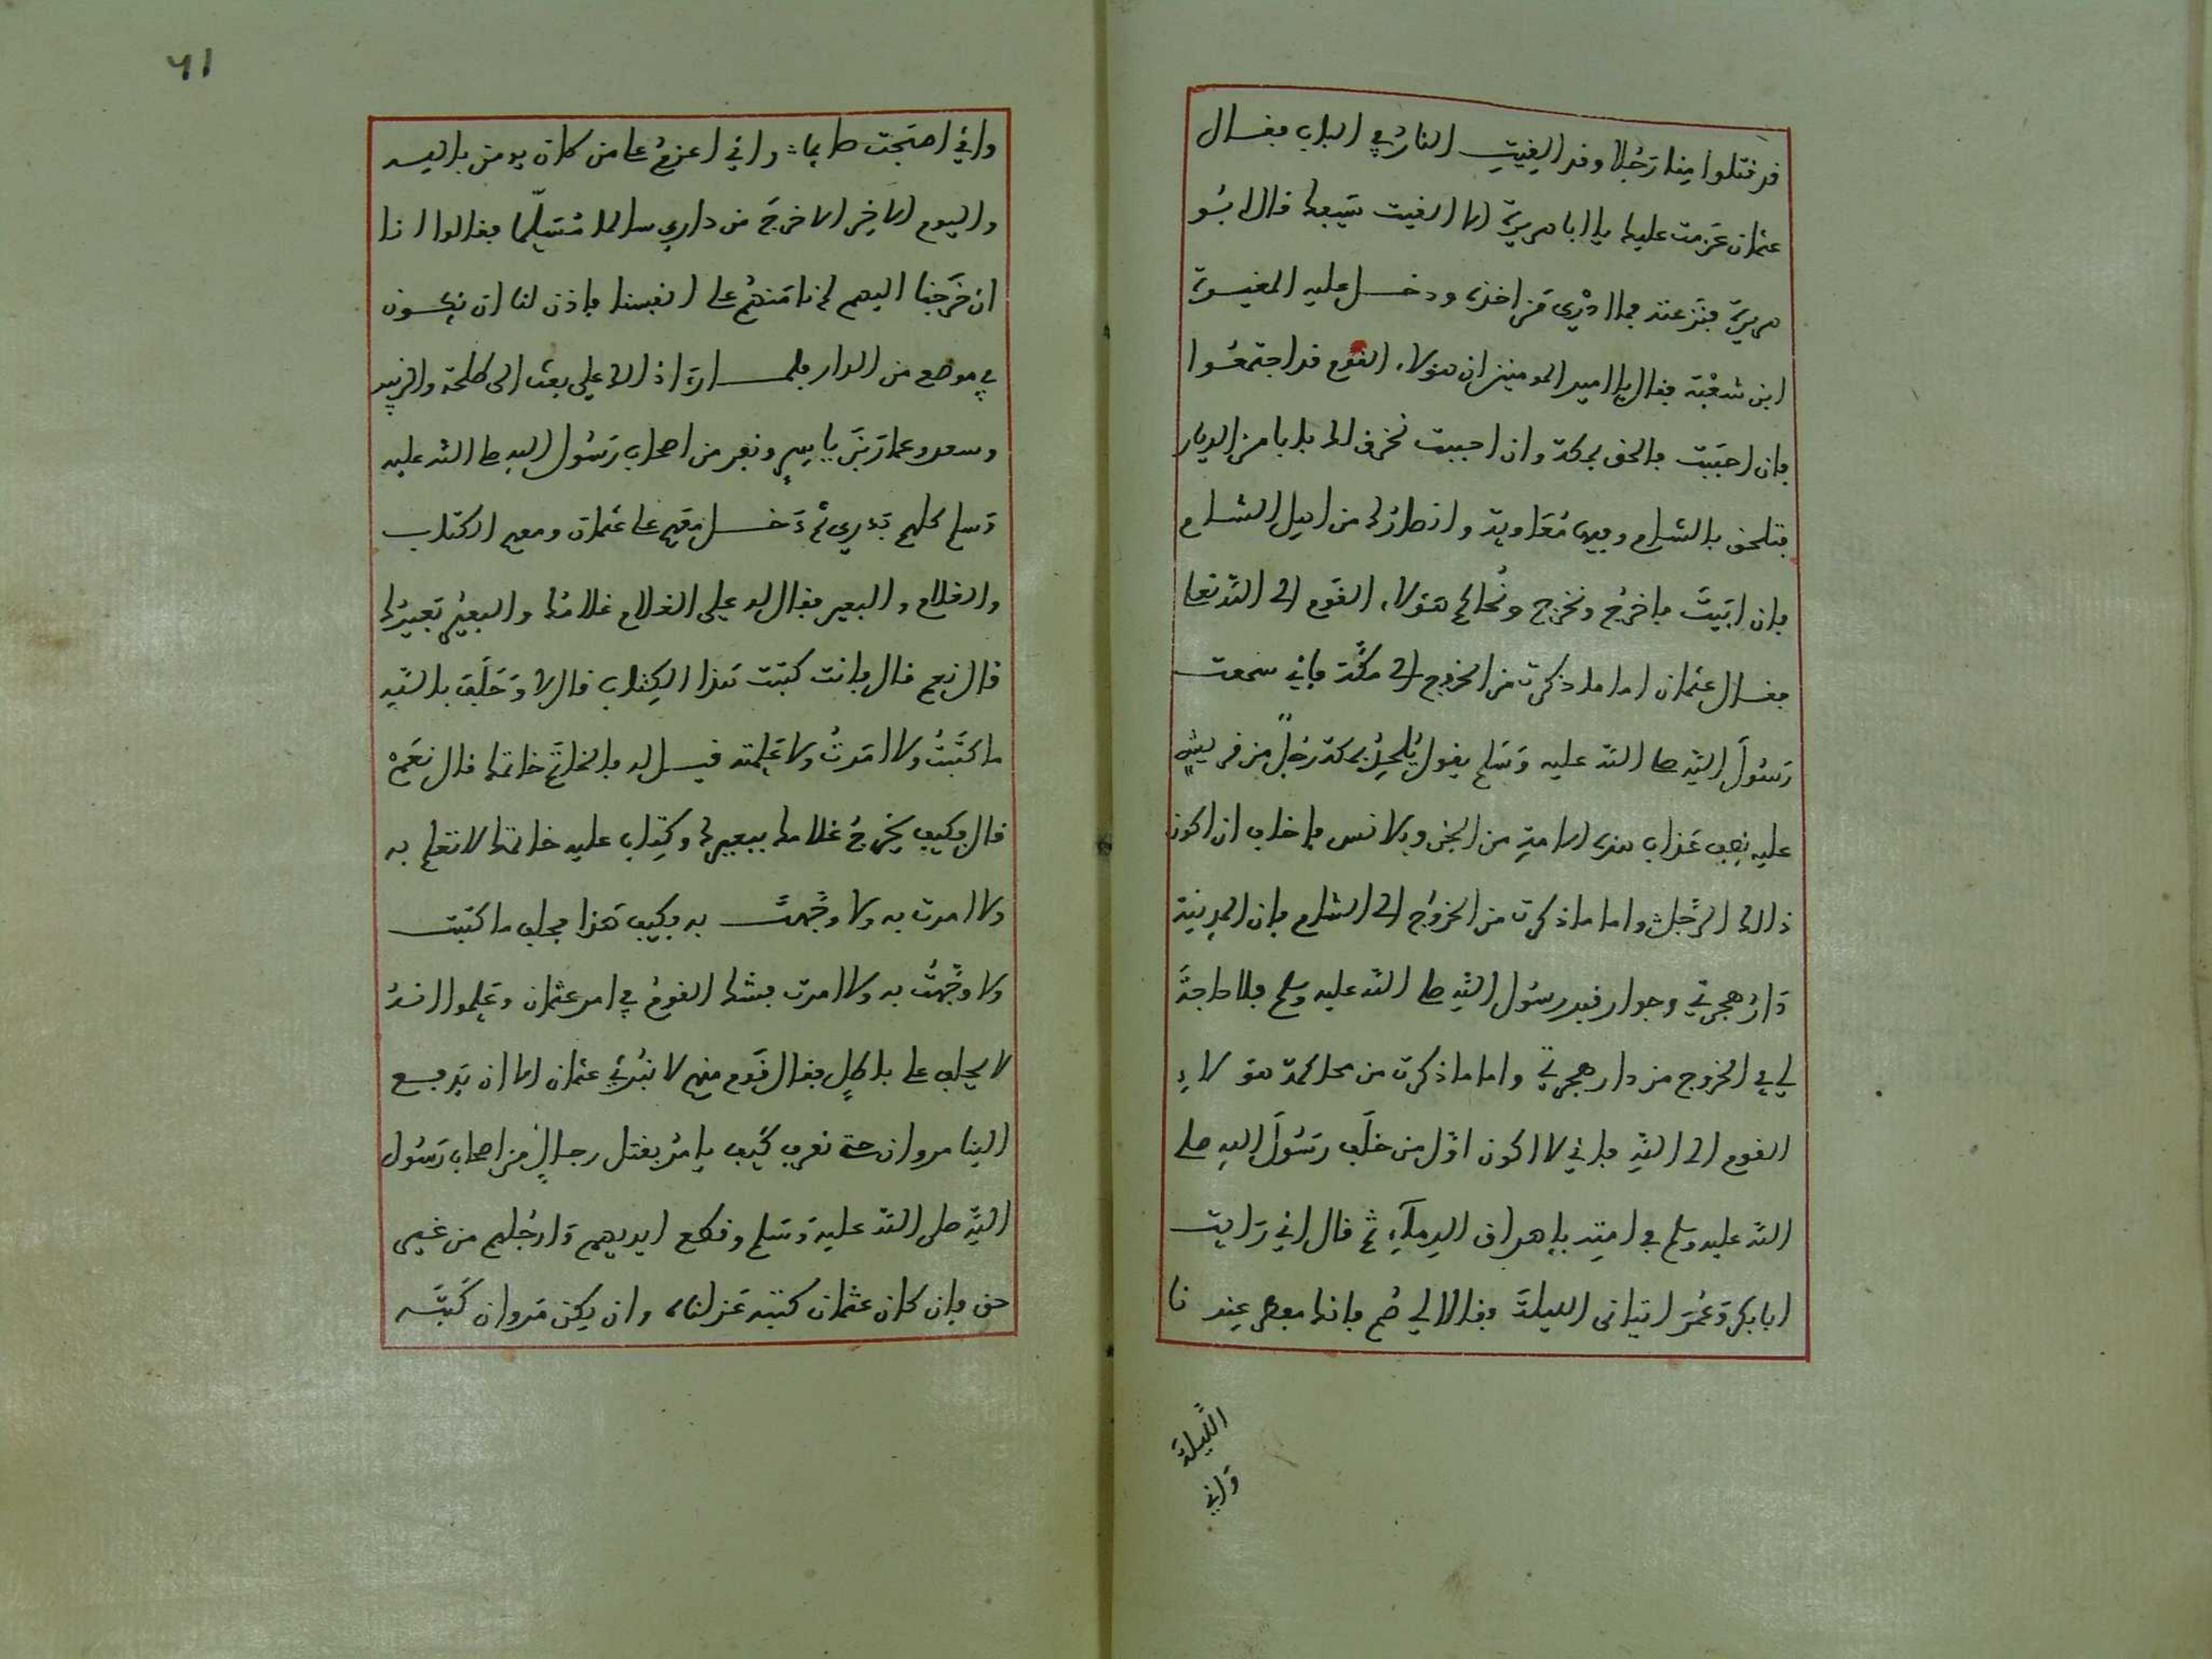 قد قتلوا منا رَجُلا وقد اليغيتِ النارُ في الباب فقال
عثمان عَزمت عليك يا ابا هريرة الا القيت سَيفك قال ابُو
هريرة فنزعته فما ادْرِى مَن اخذه ودخل عليه المغيرة
ابن شعْبَة فقال يا امير المومنين ان هؤلاء القوم قد اجتمعُوا
فإن احبَبت فالحق بمكة وان احببت نخرق لك بابا من الديار
فتلحق بالشام وفيها مُعَاوية وانصارُك من اهل الشام
فإن ابَيتَ فاخرُج ونخرج ونُحاكم هؤلاء القوم الى الله تعا
فقال عثمان اما ما ذكرت من الخروج الى مكَّة فإني سَمعت
رَسُولَ الله صلى الله عليه وَسَلم يقول يُلحِدُ بمكة رَجُلٌ من قريشٍ
عليه نِصف عَذاب هذه الامة من الجن والانس فاخاف ان اكون
ذالك الرَّجُل واما ما ذكرت من الخروُج الى الشام فإن المدينة
دَارُ هجرتي وجوار قبر رسُول الله صلى الله عليه وسلم فلا حاجةَ
لي في الخروج من دار هجرتي واما ما ذكرت من محاكمة هؤلاءِ
القوم الى اللهِ فاني لا اكون اوَّل من خلَف رَسُولَ الله صلى
الله عليه وسلم في امتِه بإهراق الدِماَءِ ثم قال اني رَايت
ابا بكر وَعُمَرَ اتيانى الليلةَ فقالا لي صُم فانك مفطر عِندنا
اللَّيلةَ
وَاني
٦١
واني اصبَحت صايما واني اعزمُ على من كان يومن بالله
واليوم الاخِر الا خرجَ من داري سالما مُسَلّما فقالوا انا
ان خَرَجنا اليهم لم نامَنهُم على انفسنا فاذن لنا ان نكون
في موضع من الدار فلما راى ذالك علي بعث الى طلحة والزبير
وسعد وعمار بَنَ ياسِرٍ ونفر من اصحاب رَسُول الله صلى الله عليه
وَسلم كلهم بَدري ثم دَخل مَعَهم على عثمان ومعه الكتاب
والغلام والبعير فقال له علي الغلام غلامُك والبعيرُ بَعيرُك
قال نعم قال فانت كتبت هَذا الكِتاب قال لا وَحَلَف باللهِ
ما كَتَبتُ ولا امَرتُ ولا عَلِمته قيل له فالخاتَم خاتمك قال نَعَم
قال فكيف يخرجُ غلامك ببعيرك وكِتاب عليه خاتمك لا تعلم به
ولا امرت به ولا وجَّهتَ به فكيف هَذا فحلف ما كتبت
ولا وجَّهتُ به ولا امرت فشك القومُ في امر عثمان وعَلموا انهُ
لا يحلف على باطلٍ فقال قَوم منهم لا نُبَرئ عثمان الا ان يَدفع
الينا مروان حتى نعرف كَيف يامُر بقتل رجالٍ من اصحاب رَسُول
الله صلى الله عليه وَسَلم وقطع ايديهم وَارجُلهم من غير
حق فإن كان عثمان كتبه عَزلناه وان يكن مَروان كَتَبَه